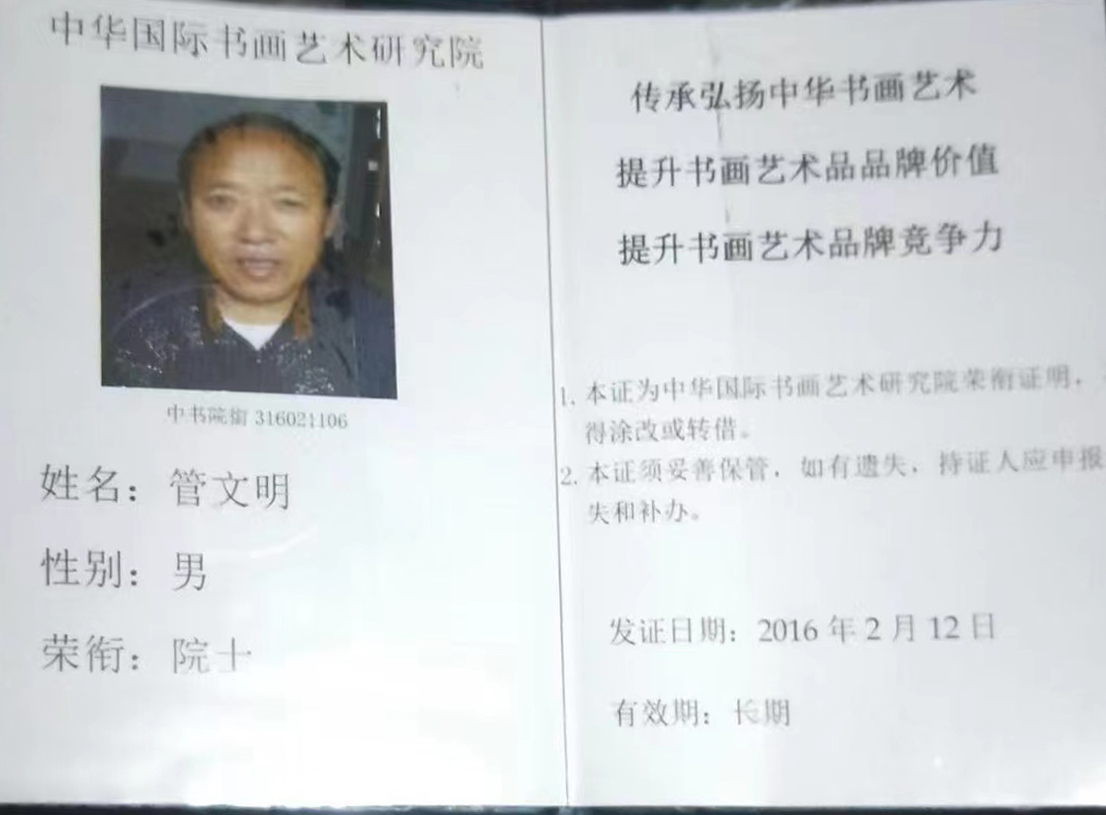 中华国际书画艺术研究院
中书院衔 316021106
姓名：管文明
性别：男
荣衔：院士
传承弘扬中华书画艺术
提升书画艺术品品牌价值
提升书画艺术品牌竞争力
1. 本证为中华国际书画艺术研究院荣衔证明，
得涂改或转借。
2. 本证须妥善保管，如有遗失，持证人应申报
失和补办。
发证日期：2016 年 2 月 12 日
有效期：长期